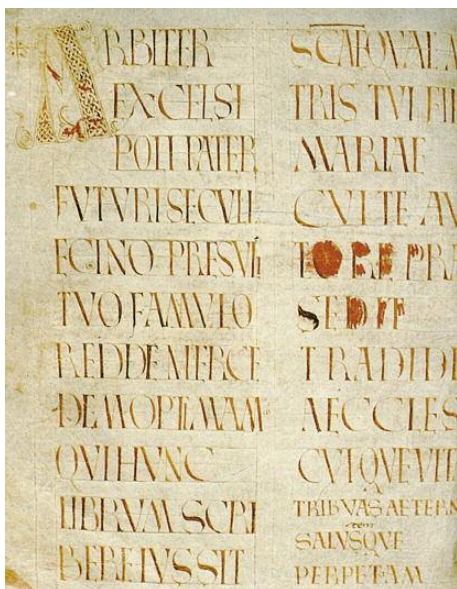 ARBITER
EXCELSI
POLI PATER
FVTVRI SECVLI
ECINO PRESVLI
TVO FAMVLO
REDDE MERCE
DEM OPTIMAM
QVI HVNC
LIBRVM SCRI
BERE IVSSIT
TRIS TVI FI
MARIAE
CVI TE AV
TORE PRA
SEDIT
TRADIDI
AECCLES
CVIQVE VIT
TRIBVAS AETERN
SALVSQVE
PERPETAM